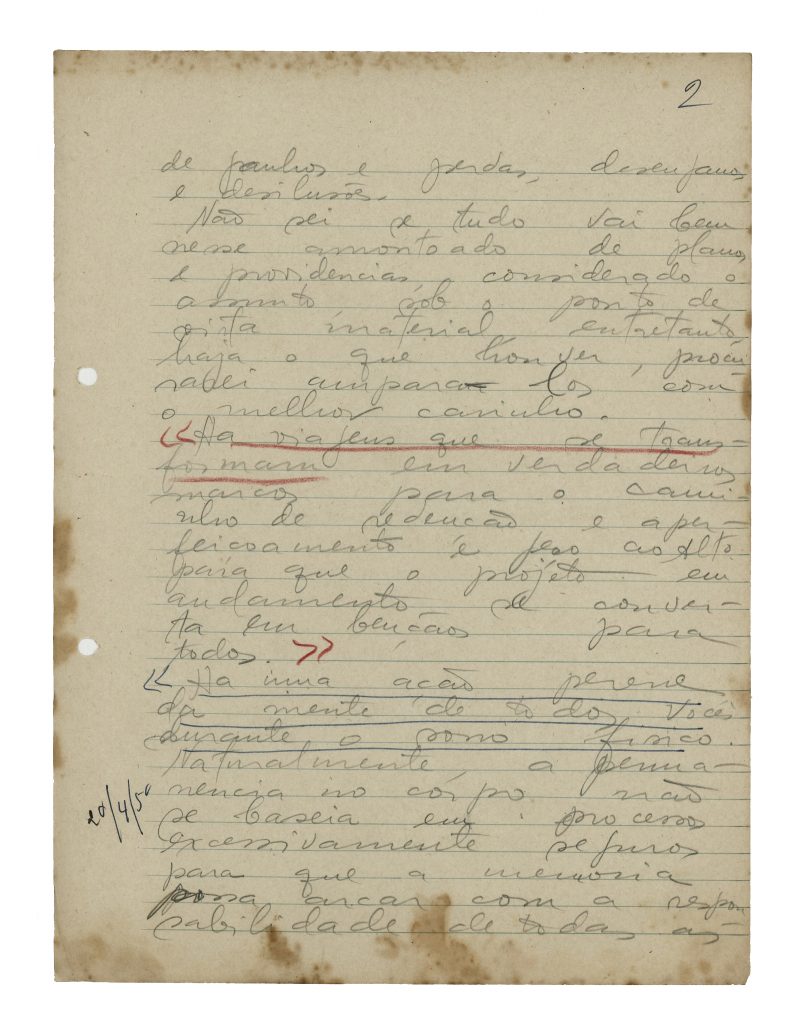 2
de ganhos e perdas, desenganos
e desilusões.
Não sei se tudo vai bem
nesse amontoado de planos
e providencias, considerado o
assunto sób o ponto de
vista material, entretanto,
haja o que houver, procu-
rarei ampara-los com
o melhor carinho.
«Ha viagens que se trans-
formam em verdadeiros
marcos para o cami-
nho de redenção e aper-
feicoamento e peço ao Alto
para que o projéto em
andamento se conver-
ta em bençãos para
todos. »
« Ha uma acão perene
da mente de todos vocês
durante o sono fisico.
Naturalmente, a perma-
nencia no córpo não
20/4/50
se baseia em processos
excessivamente seguros
para que a memoria
possa arcar com a respon
sabilidade de todas as